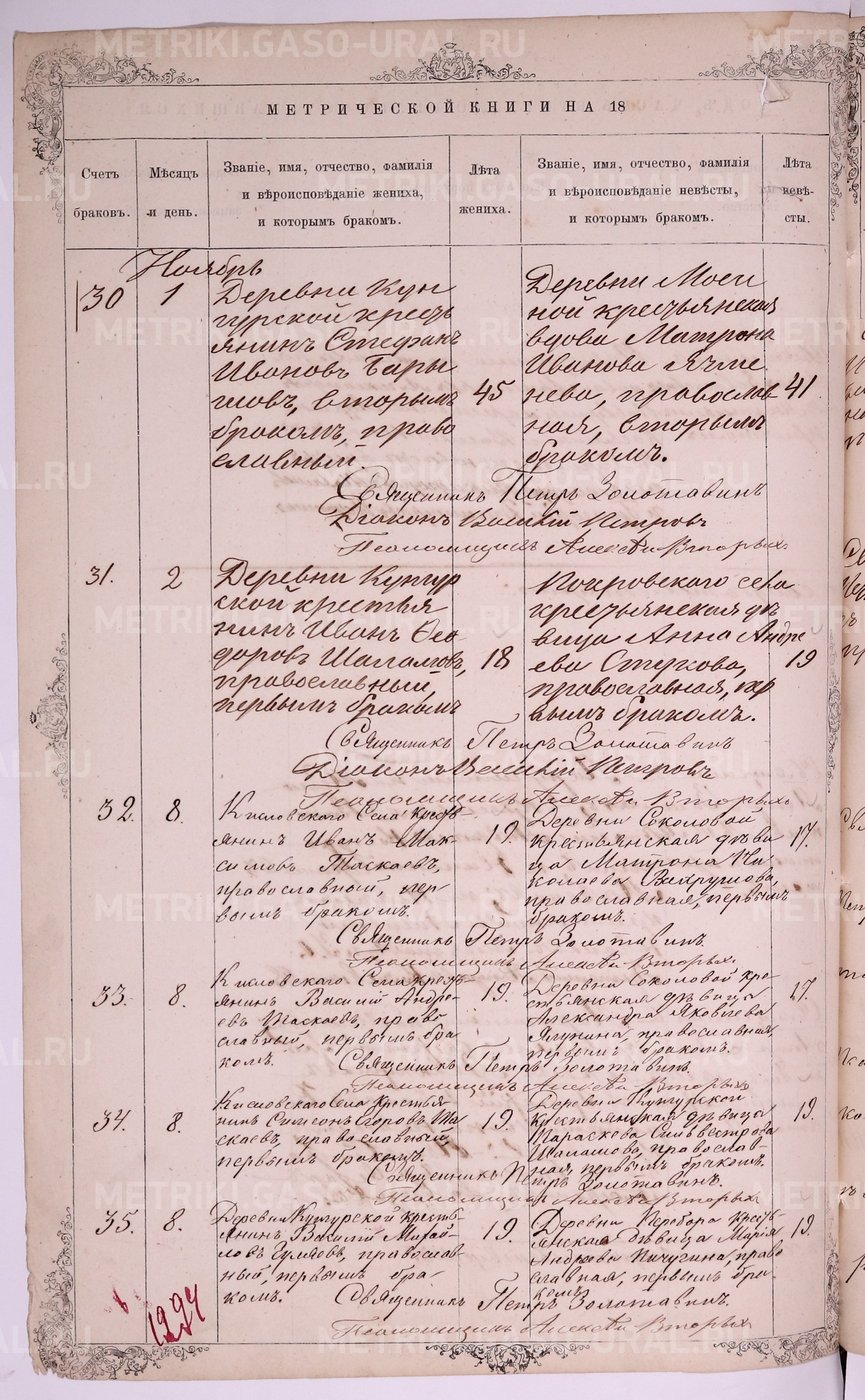 МЕТРИЧЕСКОЙ КНИГИ НА 18
Счетъ браковъ.
Мѣсяцъ и день.
Званіе, имя, отчество, фамилія
и вѣроисповѣданіе жениха,
и которымъ бракомъ.
Лѣта жениха.
Званіе, имя, отчество, фамилія
и вѣроисповѣданіе невѣсты,
и которымъ бракомъ.
Лѣта невѣ-
сты.
Ноябрь
30
1
Деревни Кун
гурской кресть
янинъ Стефанъ
Ивановъ Бары
шовъ, вторымъ
бракомъ, право
славный.
45
Деревни Моси
ной крестьянская
вдова Матрона
Иванова Ячме
нева, православ
ная, вторымъ
бракомъ.
41
Священникъ Петръ Золотавинъ
Діаконъ Василій Петровъ
Псаломщикъ Алексѣй Вторыхъ
31.
2
Деревни Кунгур
ской крестья
нинъ Иванъ Ѳео
доровъ
православный,
первымъ бракомъ
18
Покровского села
крестьянская дѣ
вица Анна Андре
ева
православная, пер
вымъ бракомъ.
19
Священникъ Петръ Золотавинъ
Діаконъ Василій Петровъ
Псаломщикъ Алексѣй Вторыхъ
32.
8.
Кисловского Села кресть-
янинъ Иванъ Мак-
симовъ Таскаевъ,
православный, пер
вымъ бракомъ.
19.
Деревни Соколовой
крестьянская дѣви
ца Матрона Ни-
колаева Вахрушова,
православная, первымъ
бракомъ.
17.
Священникъ Петръ Золотавинъ.
Псаломщикъ Алексѣй Вторыхъ.
33.
8.
Кисловского Села кресть-
янинъ Василій Андре-
евъ Таскаевъ, право
славный, первымъ бра
комъ.
19.
Деревни Соколовой кре-
стьянская дѣвица
Александра Яковлева
Ялунина, православная,
первымъ бракомъ.
17.
Священникъ Петръ Золотавинъ.
Псаломщикъ Алексѣй Вторыхъ
34.
8.
Кисловского Села крестья
нинъ Симеонъ Егоровъ Та
скаевъ, православный,
первымъ бракомъ.
19.
Деревни Кунгурской
крестьянская дѣвица
Параскева Сильвестрова
православ-
ная, первымъ бракомъ.
19.
Священникъ Петръ Золотавинъ.
Псаломщикъ Алексѣй Вторыхъ
35.
8.
Деревни Кунгурской кресть-
янинъ Василій Михай-
ловъ православ-
ный, первымъ бра-
комъ.
19.
Деревни Перебора кресть-
янская дѣвица Марія
Андреева Пичугина, право
славная, первымъ бра-
комъ.
19.
Священникъ Петръ Золотавинъ.
Псаломщикъ Алексѣй Вторыхъ
METRIKI.GASO-URAL.RU